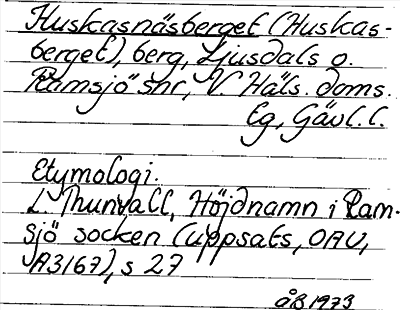 Huskasnäsberget (Huskas-
berget), berg, Ljusdals o.
Ramsjö snr, V. Häls. doms.
Eg, Gävl. l.
Etymologi.
L. Thunvall, Höjdnamn i Ram-
sjö socken (uppsats, OAU,
A3167), s 27
åB 1973